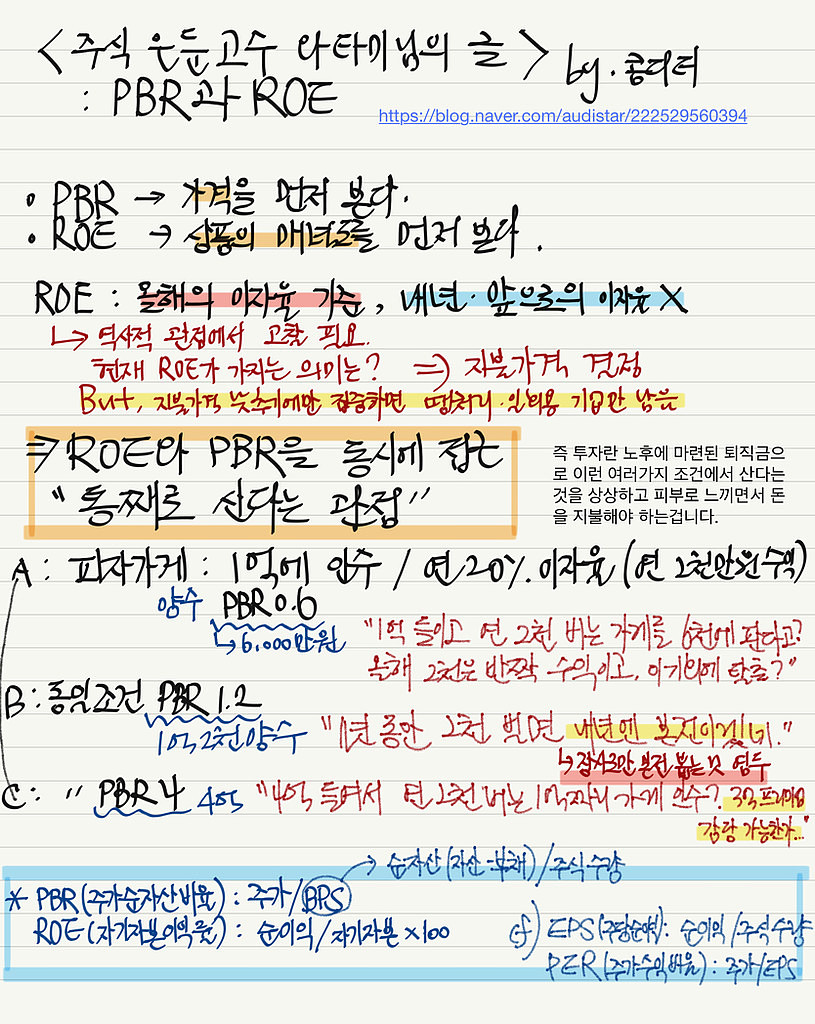 <주식 은둔고수 와타미님의 글> by. 콩디터
: PBR과 ROE
https://blog.naver.com/audistar/222529560394
• PBR → 가격을 먼저 본다.
• ROE → 상품의 매력도를 먼저 본다.
ROE : 올해의 이자율 기준, 내년·앞으로의 이자율 X
↳ 역사적 관점에서 고찰 필요.
현재 ROE가 가지는 의미는? ⇒ 지불가격 결정
But, 지불가격 낮추기에만 집중하면 땡처리·인 기업만 남음
⇒ ROE와 PBR을 동시에 잡는
"통째로 산다는 관점"
즉 투자란 노후에 마련된 퇴직금으
로 이런 여러가지 조건에서 산다는
것을 상상하고 피부로 느끼면서 돈
을 지불해야 하는겁니다.
A : 피자가게 : 1억에 인수 / 연 20% 이자율 (연 2천만원 수익)
양수 PBR 0.6
↳ 6,000만원
"1억 들이고 연 2천 버는 가게를 6천에 판다고?
올해 2천은 반짝 수익이고, 이기회에 탈출?"
B : 동일조건 PBR 1.2
1억2천 양수
"1년 동안 2천 벌면 내년엔 본전이겠네."
↳ 장사로만 본전 뽑는 것 염두
C : " PBR 4 4억
"4억 들여서 연 2천 버는 1억짜리 가게 인수? 3억 프리미엄
감당 가능한가..."
* PBR (주가순자산비율) : 주가/BPS → 순자산(자산-부채)/주식수량
ROE (자기자본이익률) : 순이익/자기자본 ×100
cf) EPS(주당순이익) : 순이익/주식수량
PER (주가수익비율) : 주가/EPS